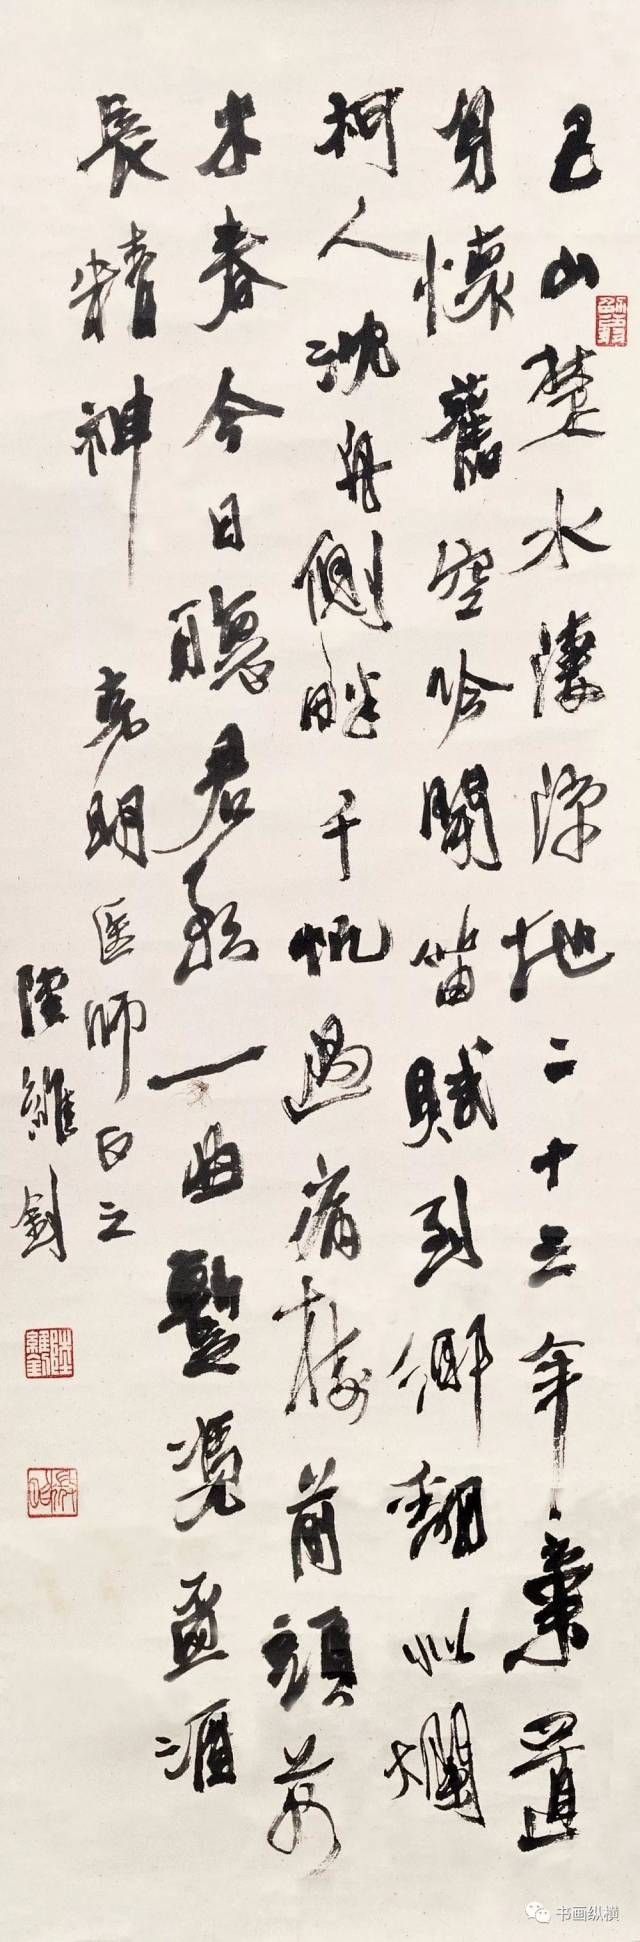 巴山楚水淒涼地二十三年棄置
身懷舊空吟聞笛賦到鄉翻似爛
柯人沈舟側畔千帆過病樹前頭萬
木春今日聽君歌一曲暫憑盃酒
長精神
明医師正之
陸維釗
陸維釗
书画纵横